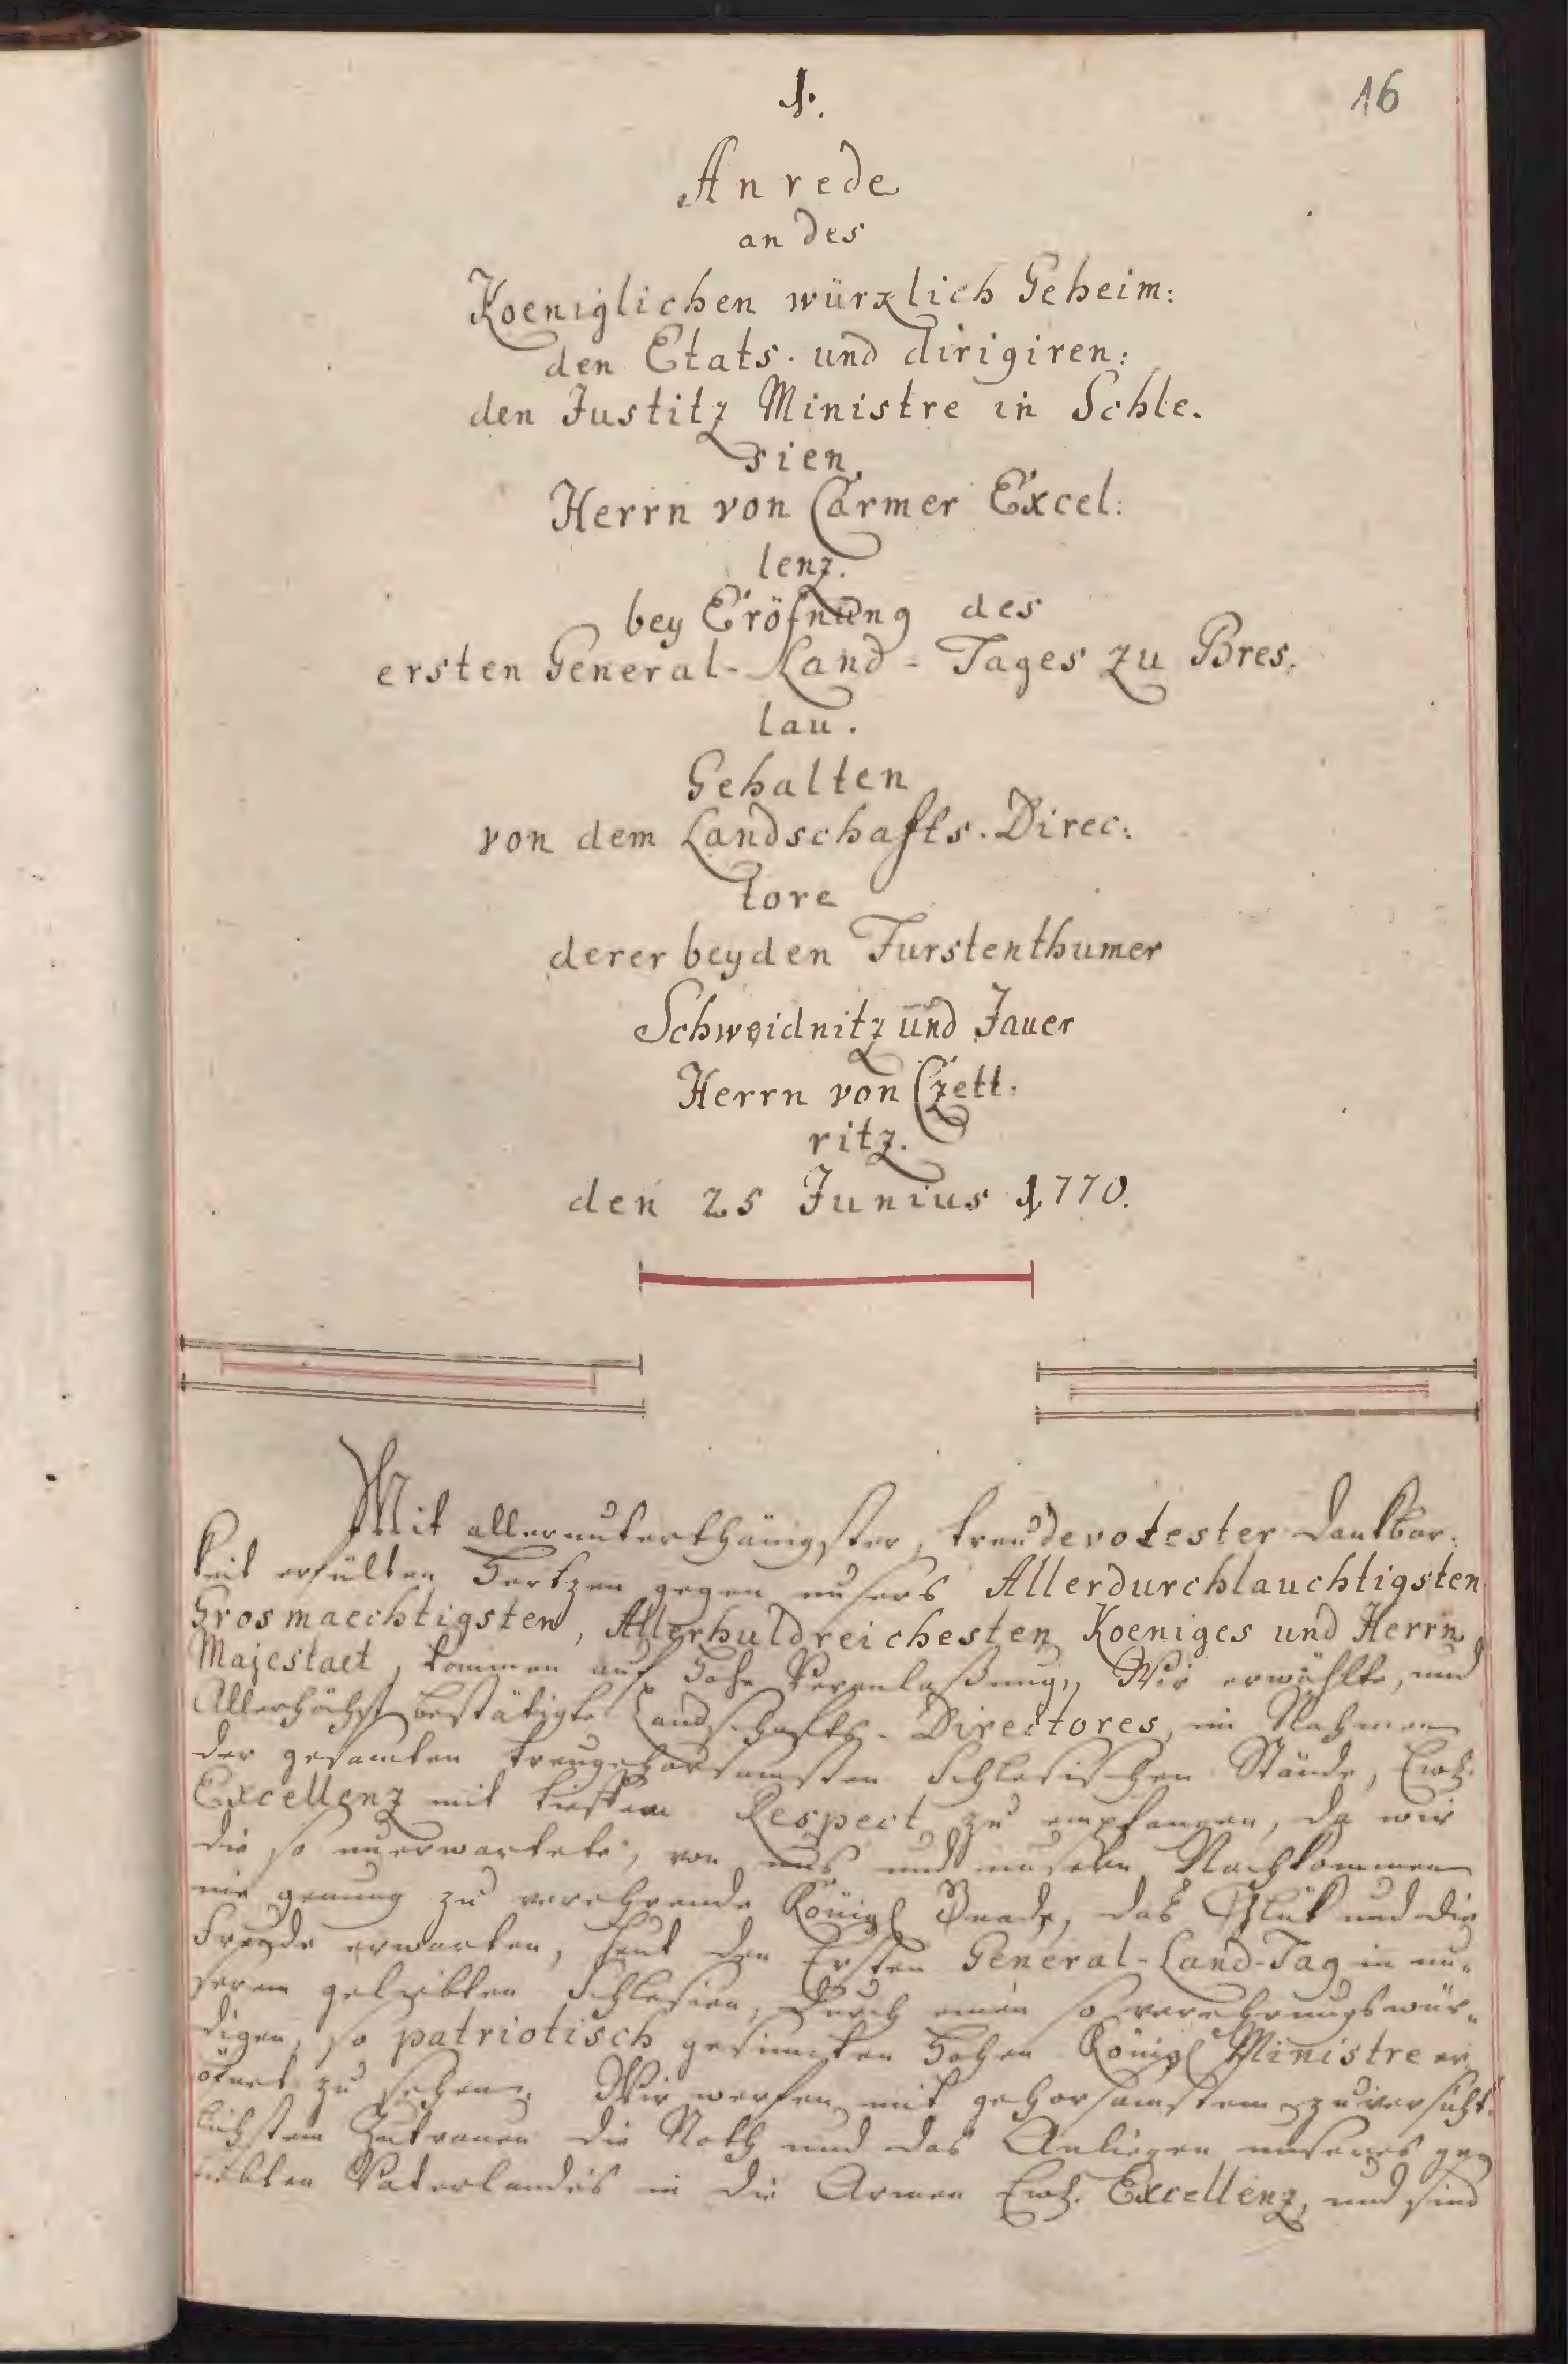 1.
16
Anrede
an des
Koeniglichen würzlich Geheim:
den Etats. und dirigiren:
den Justitz Ministre in Schle.
sien.
Herrn von Carmer Excel:
lenz.
bey Eröfnung des
ersten General-Land-Tages zu Bres.
lau.
Gehalten
von dem Landschafts. Direc:
tore
derer beyden Furstenthumer
Schweidnitz und Jauer
Herrn von Czett.
ritz.
den 25 Junius 1770.
Mit allerunterthänigster, treudevotester Dankbar.
keit erfülten Hertzen gegen unsers Allerdurchlauchtigsten
Grosmaechtigsten, Allerhuldreichesten Koeniges und Herrn
Majestaet, kommen auf Hohe Veranlaßung, Wir erwählte, und
Allerhöchst bestätigte Landschafts-Directores, im Nahmen
der gesamten treugehorsamsten Schlesischen Stände, Ewh.
Excellenz mit tiefstem Respect zu empfangen, da wir
die so unerwartete, von uns und unsern Nachkommen
nie genung zu verehrende Königl Gnade, das Glük und die
Freude erwarten, heut den Ersten General-Land-Tag in un-
serem geliebten Schlesien, durch einen so verehrungswür-
digen, so patriotisch gesinnten Hohen Königl Ministre er
öfnet zu sehen. Wir werfen mit gehorsamstem zuversicht-
lichstem Zutrauen die Noth und das Anliegen unseres ge
liebten Vaterlandes in die Armen Ewh. Excellenz, und sind